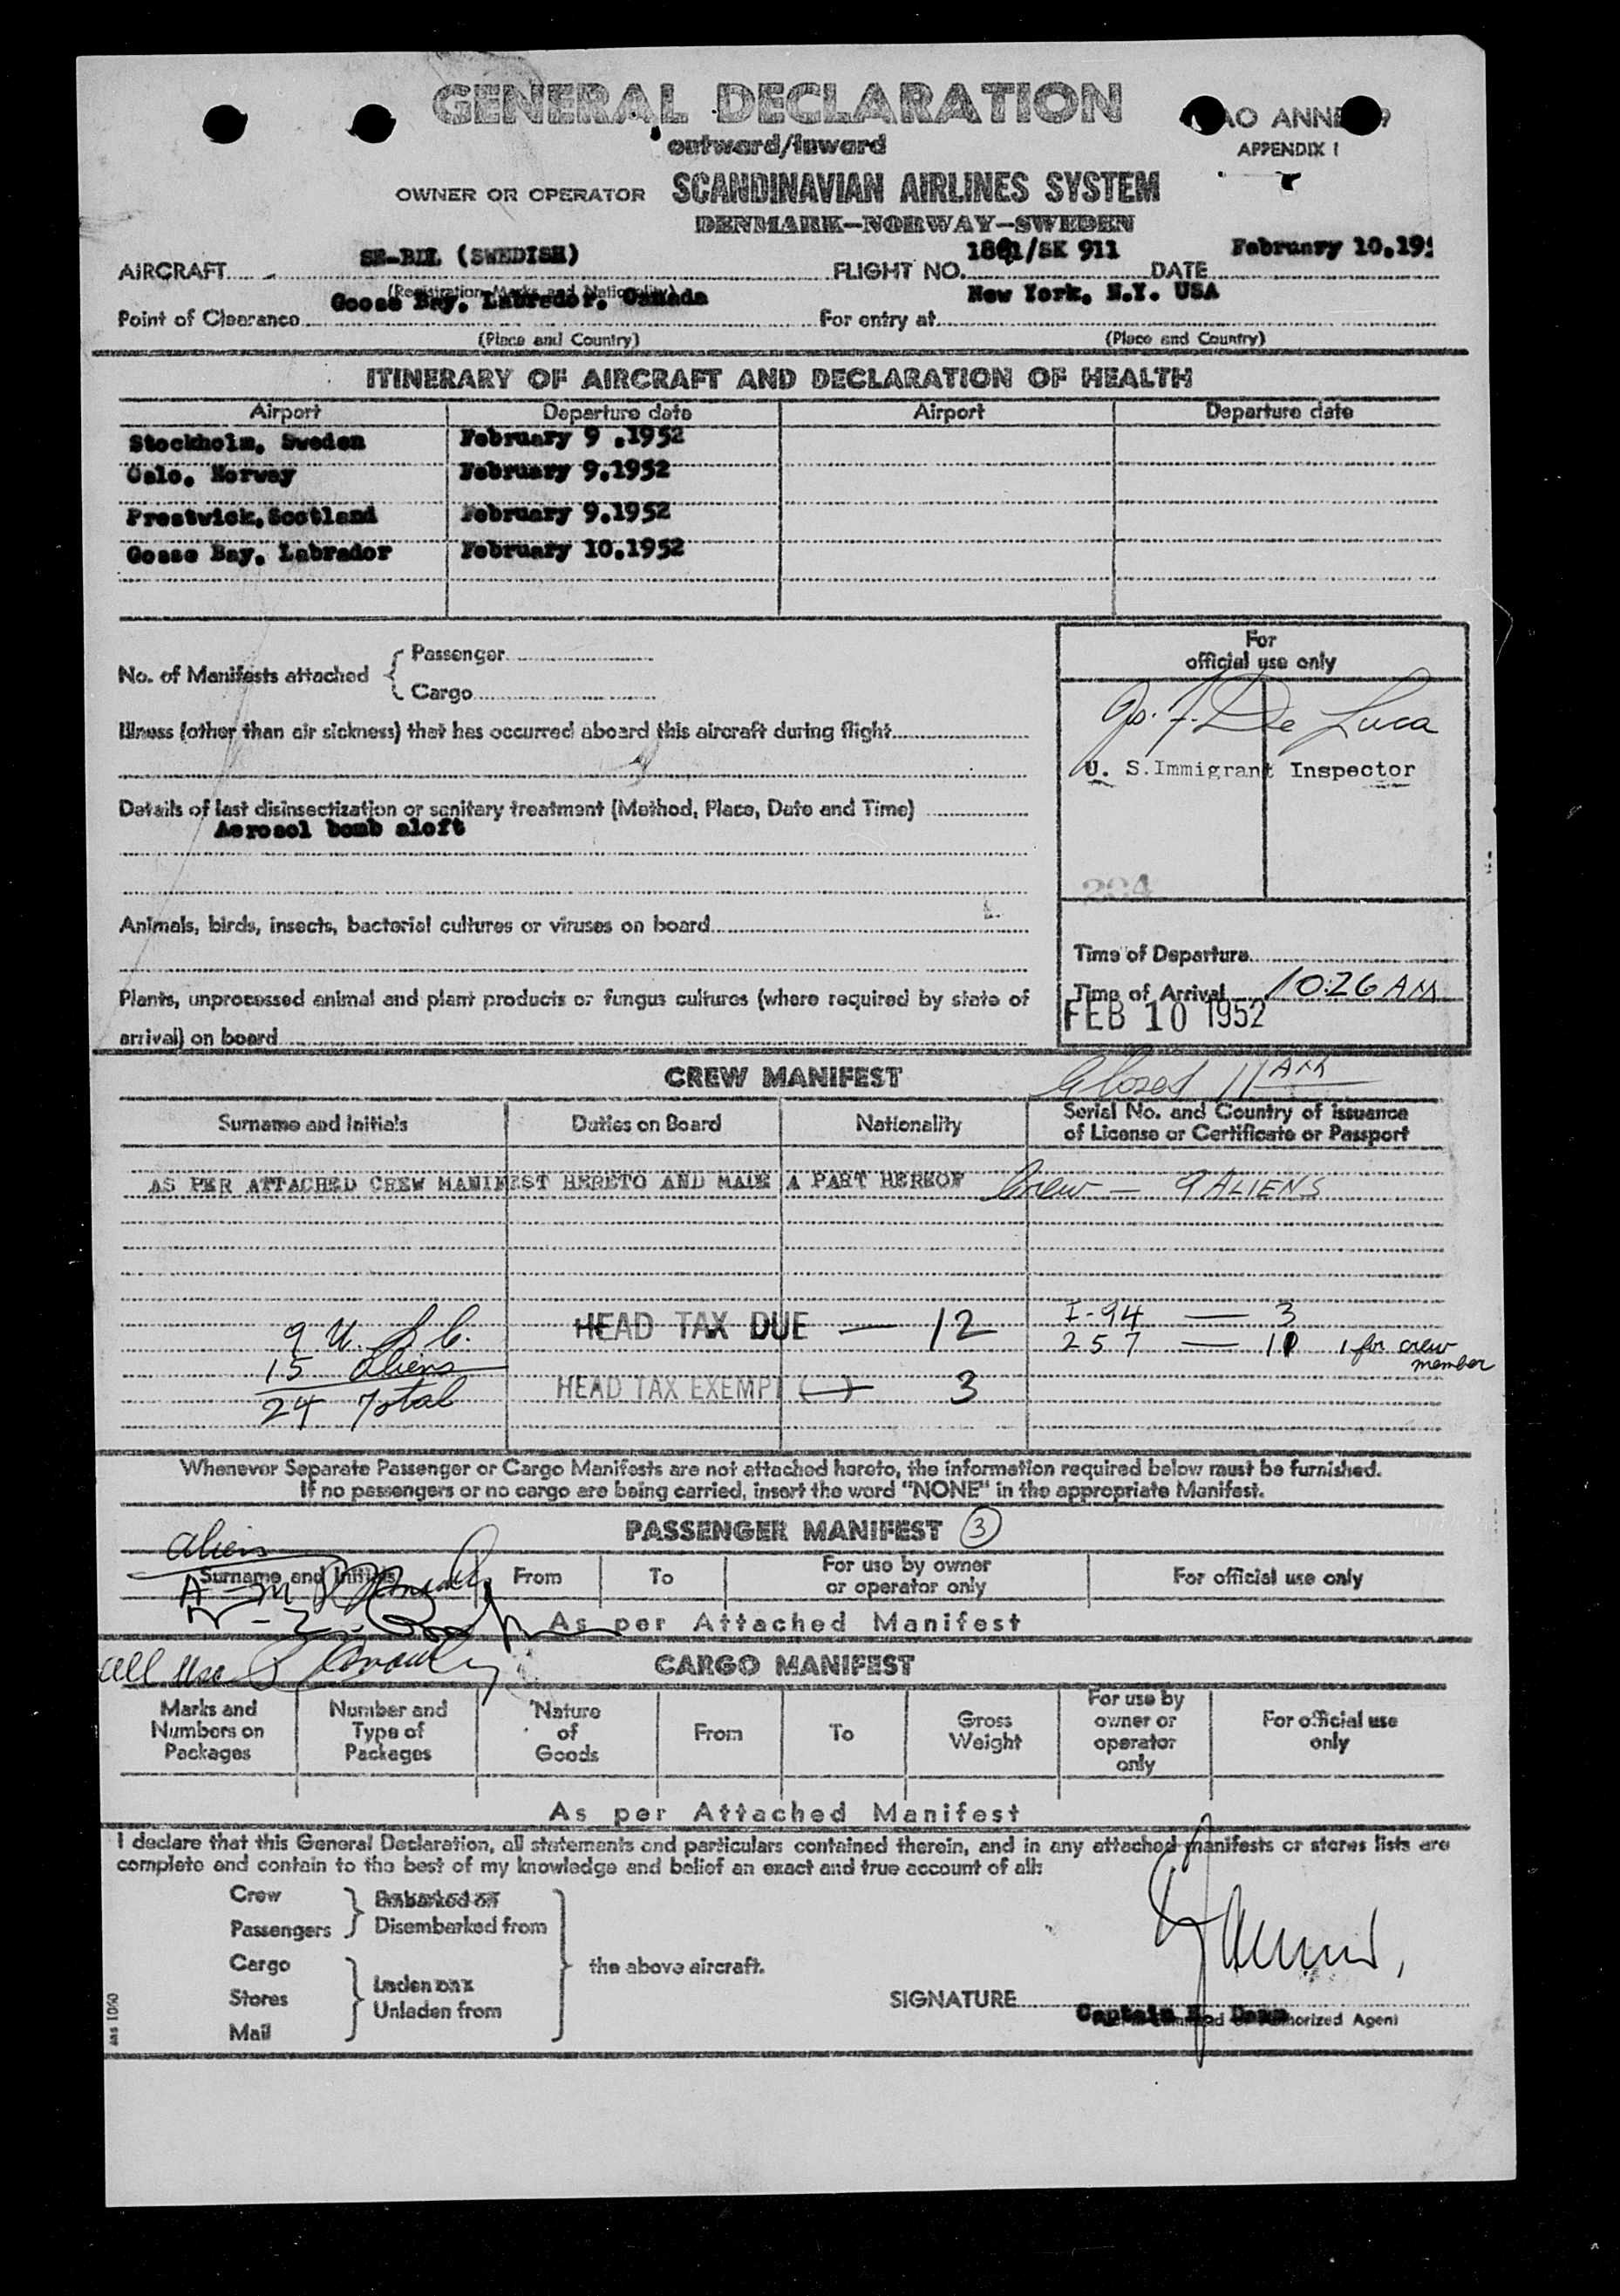 GENERAL DECLARATION
outward/inward
APPENDIX I
OWNER OR OPERATOR SCANDINAVIAN AIRLINES SYSTEM
DENMARK—NORWAY—SWEDEN
AIRCRAFT (SWEDISH) FLIGHT NO. /SK 911 DATE February 10.19
(Registration Marks and Nationality)
Point of Clearance Goose Bay, Labrador, Canada For entry at New York, N.Y. USA
(Place and Country) (Place and Country)
ITINERARY OF AIRCRAFT AND DECLARATION OF HEALTH
Airport Departure date Airport Departure date
Stockholm, Sweden February 9 .1952
Oslo, Norway February 9.1952
Prestwick,Scotland February 9.1952
Goose Bay, Labrador February 10.1952
No. of Manifests attached { Passenger
Cargo
For
official use only
De Luca
U. S.Immigrant Inspector
Illness (other than air sickness) that has occurred aboard this aircraft during flight
Details of last disinsectization or sanitary treatment (Method, Place, Date and Time)
Aerosol bomb aloft
Animals, birds, insects, bacterial cultures or viruses on board
Plants, unprocessed animal and plant products or fungus cultures (where required by state of
arrival) on board
Time of Departure
Time of Arrival 10:26 AM
FEB 10 1952
Closed 11 AM
CREW MANIFEST
Surname and Initials Duties on Board Nationality Serial No. and Country of issuance
of License or Certificate or Passport
AS PER ATTACHED CREW MANIFEST HERETO AND MADE A PART HEREOF Crew — 9 ALIENS
9 U. S. C. HEAD TAX DUE — 12 I-94 — 3
15 Aliens 257 — 11 1 for crew member
24 Total HEAD TAX EXEMPT (—) 3
Whenever Separate Passenger or Cargo Manifests are not attached hereto, the information required below must be furnished.
If no passengers or no cargo are being carried, insert the word "NONE" in the appropriate Manifest.
PASSENGER MANIFEST 3
aliens
Surname and Initials From To For use by owner
or operator only For official use only
A-M
As per Attached Manifest
all usc
CARGO MANIFEST
Marks and
Numbers on
Packages Number and
Type of
Packages Nature
of
Goods From To Gross
Weight For use by
owner or
operator
only For official use
only
As per Attached Manifest
I declare that this General Declaration, all statements and particulars contained therein, and in any attached manifests or stores lists are
complete and contain to the best of my knowledge and belief an exact and true account of all:
Crew Embarked on
Passengers Disembarked from
Cargo the above aircraft.
Stores Laden on
Unladen from
Mail
SIGNATURE
Captain
Authorized Agent